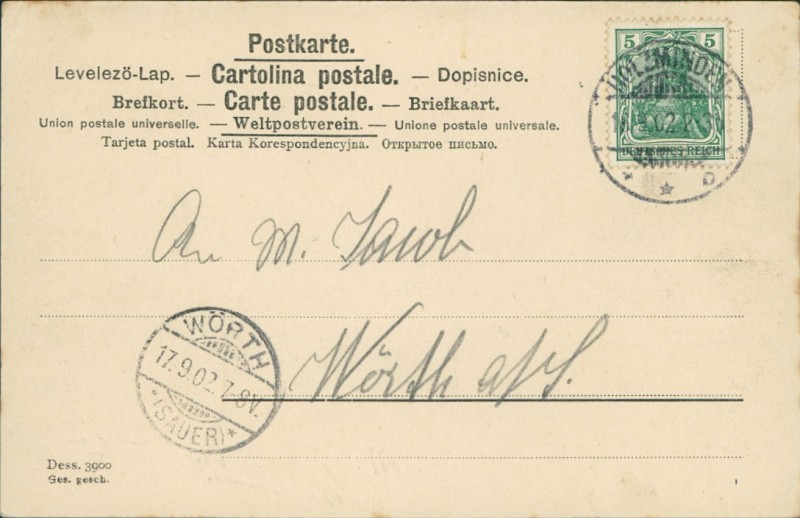 Postkarte.
Levelezö-Lap. — Cartolina postale. — Dopisnice.
Brefkort. — Carte postale. — Briefkaart.
Union postale universelle. — Weltpostverein. — Unione postale universale.
Tarjeta postal. Karta Korespondencyjna. Открытое письмо.
5 5
DEUTSCHES REICH
HOLZMINDEN
An M. Jacob
Wörth a/S.
WÖRTH
17.9.02. 7-8V.
(SAUER)
Dess. 3900
Ges. gesch.